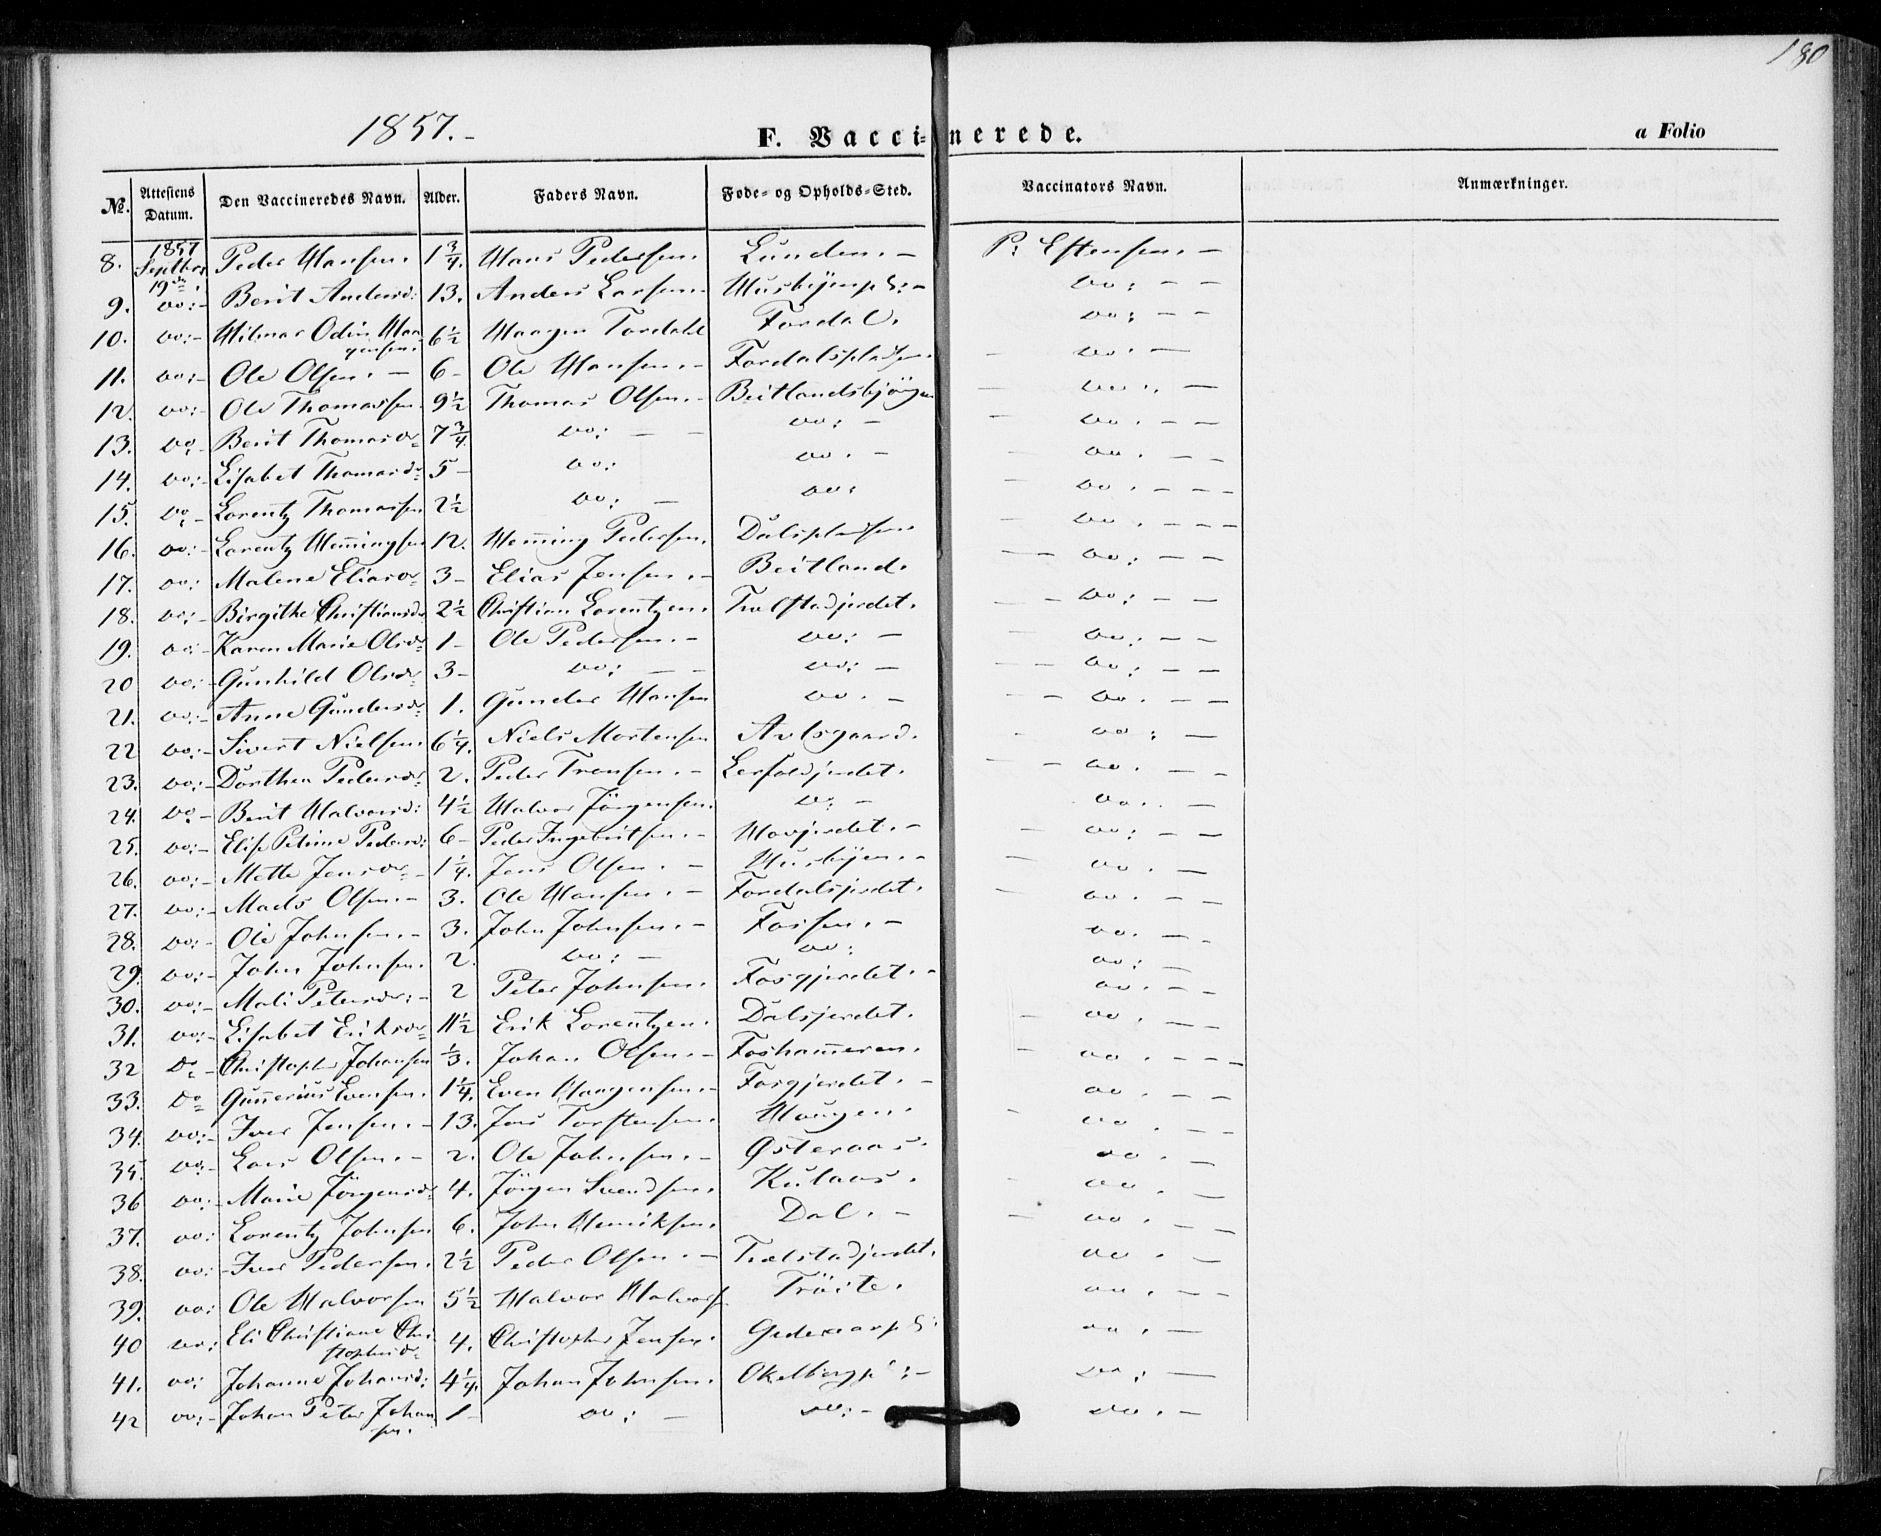 180
1857.-
F. Vaccinerede.
a Folio
№. Attestens Datum. Den Vaccineredes Navn. Alder. Faders Navn. Føde- og Opholds-Sted. Vaccinators Navn. Anmærkninger.
8. 1857 Septbr 19de Peder Hansen. 1 3/4. Hans Pedersen. Lunden. - P. Estensen. -
9. do:- Berit Andersd: 13. Anders Larsen. Husbyenpl: - do: - -
10. do:- Hilmar Odin Haagensen. 6 1/2 Haagen Fordahl Fordal. do: - -
11. do:- Ole Olsen. - 6 - Ole Hansen. - Fordalspladsen. - do. -
12. do:- Ole Thomassen. 9 1/2 Thomas Olsen. - Beitlandsbjörgen - do. -
13. do Berit Thomasdr 7 3/4. do: - - do: - - do. - -
14. do:- Lisabet Thomasdr 5 - do: do. - - do. - -
15. do - Lorentz Thomassen 2 1/2 do: - do: - do. - - -
16. do:- Lorentz Hem̄ingsen 12. Hem̄ing Pedersen. Dalspladsen. - do. - - -
17. do: Malene Eliasdr 3 - Elias Jensen. - Beitland. - - do: - -
18. do:- Birgithe Christiansdr 2 1/2 Christian Lorentzen. Tralstadjerdet. - - do: - -
19. do:- Karen Marie Olsdr 1 - Ole Pedersen. - do: - - do: - -
20 do:- Gunhild Olsdr 3 - do: - - do: - - - do: - -
21. do:- Anne Gundersdr 1. Gunder Hansen do. - - - do. - -
22 do:- Sivert Nielsen. 6 1/4. Niels Mortensen Avlsgaard. - do: -
23. do:- Dorthea Pedersdr 2. Peder Tronsen. - Lerfaldjerdet. - - do. - -
24. do - Berit Halvorsd: 4 1/2 Halvor Jörgensen. do: - do. -
25. do:- Elise Petrine Pedersd: 6 - Peder Ingebritsen. - Hovjerdet. - - do: - -
26. do:- Mette Jensdr - 1 1/4. Jens Olsen. - Husbyen. - - do. -
27. do:- Mads Olsen. - 3. Ole Hansen. - Fordalsjerdet. - do. - -
28. do:- Ole Johnsen. - 3. John Johnsen. - Fossen. - do. - -
29. do:- John Johnsen. 2. do: - do: do: -
30. do:- Mali Petersdr: - 2 Peter Johnsen. Fosgjerdet. - do. - -
31. do:- Lisabet Eriksdr 11 1/2 Erik Lorentzen. Dalsjerdet. - do. - -
32 Do - Christopher Johansen 1/3. Johan Olsen. - Fosham̄eren. - do. - - -
33. Do Gun̄erius Evensen. 1 1/4. Even Haagensen. - Fosgjerdet. - do. - -
34. do:- Iver Jensen. - 13. Jens Torstensen. Haugen. - do. - -
35. do. Lars Olsen. - 2. Ole Johnsen. - Østeraas. do. -
36 do:- Marie Jörgensdr 4. Jörgen Svendsen. Kulaas. - do. -
37. do: Lorentz Johnsen 6. John Henriksen. Dal. - - do. - -
38. do: - Iver Pedersen. 2 1/2 Peder Olsen. - Trælstadjerdet. do. -
39. do: Ole Halvorsen 5 1/2 Halvor Halvorsen Tröite. do. -
40 do: Eli Christiane Christophersdr 4. Christopher Jensen. do. -
41. do: Johanne Johansd: 4 1/4. Johan Johnsen. do: -
42 do:- Johan Peter Johansen. 1 - do: - do: - do. -